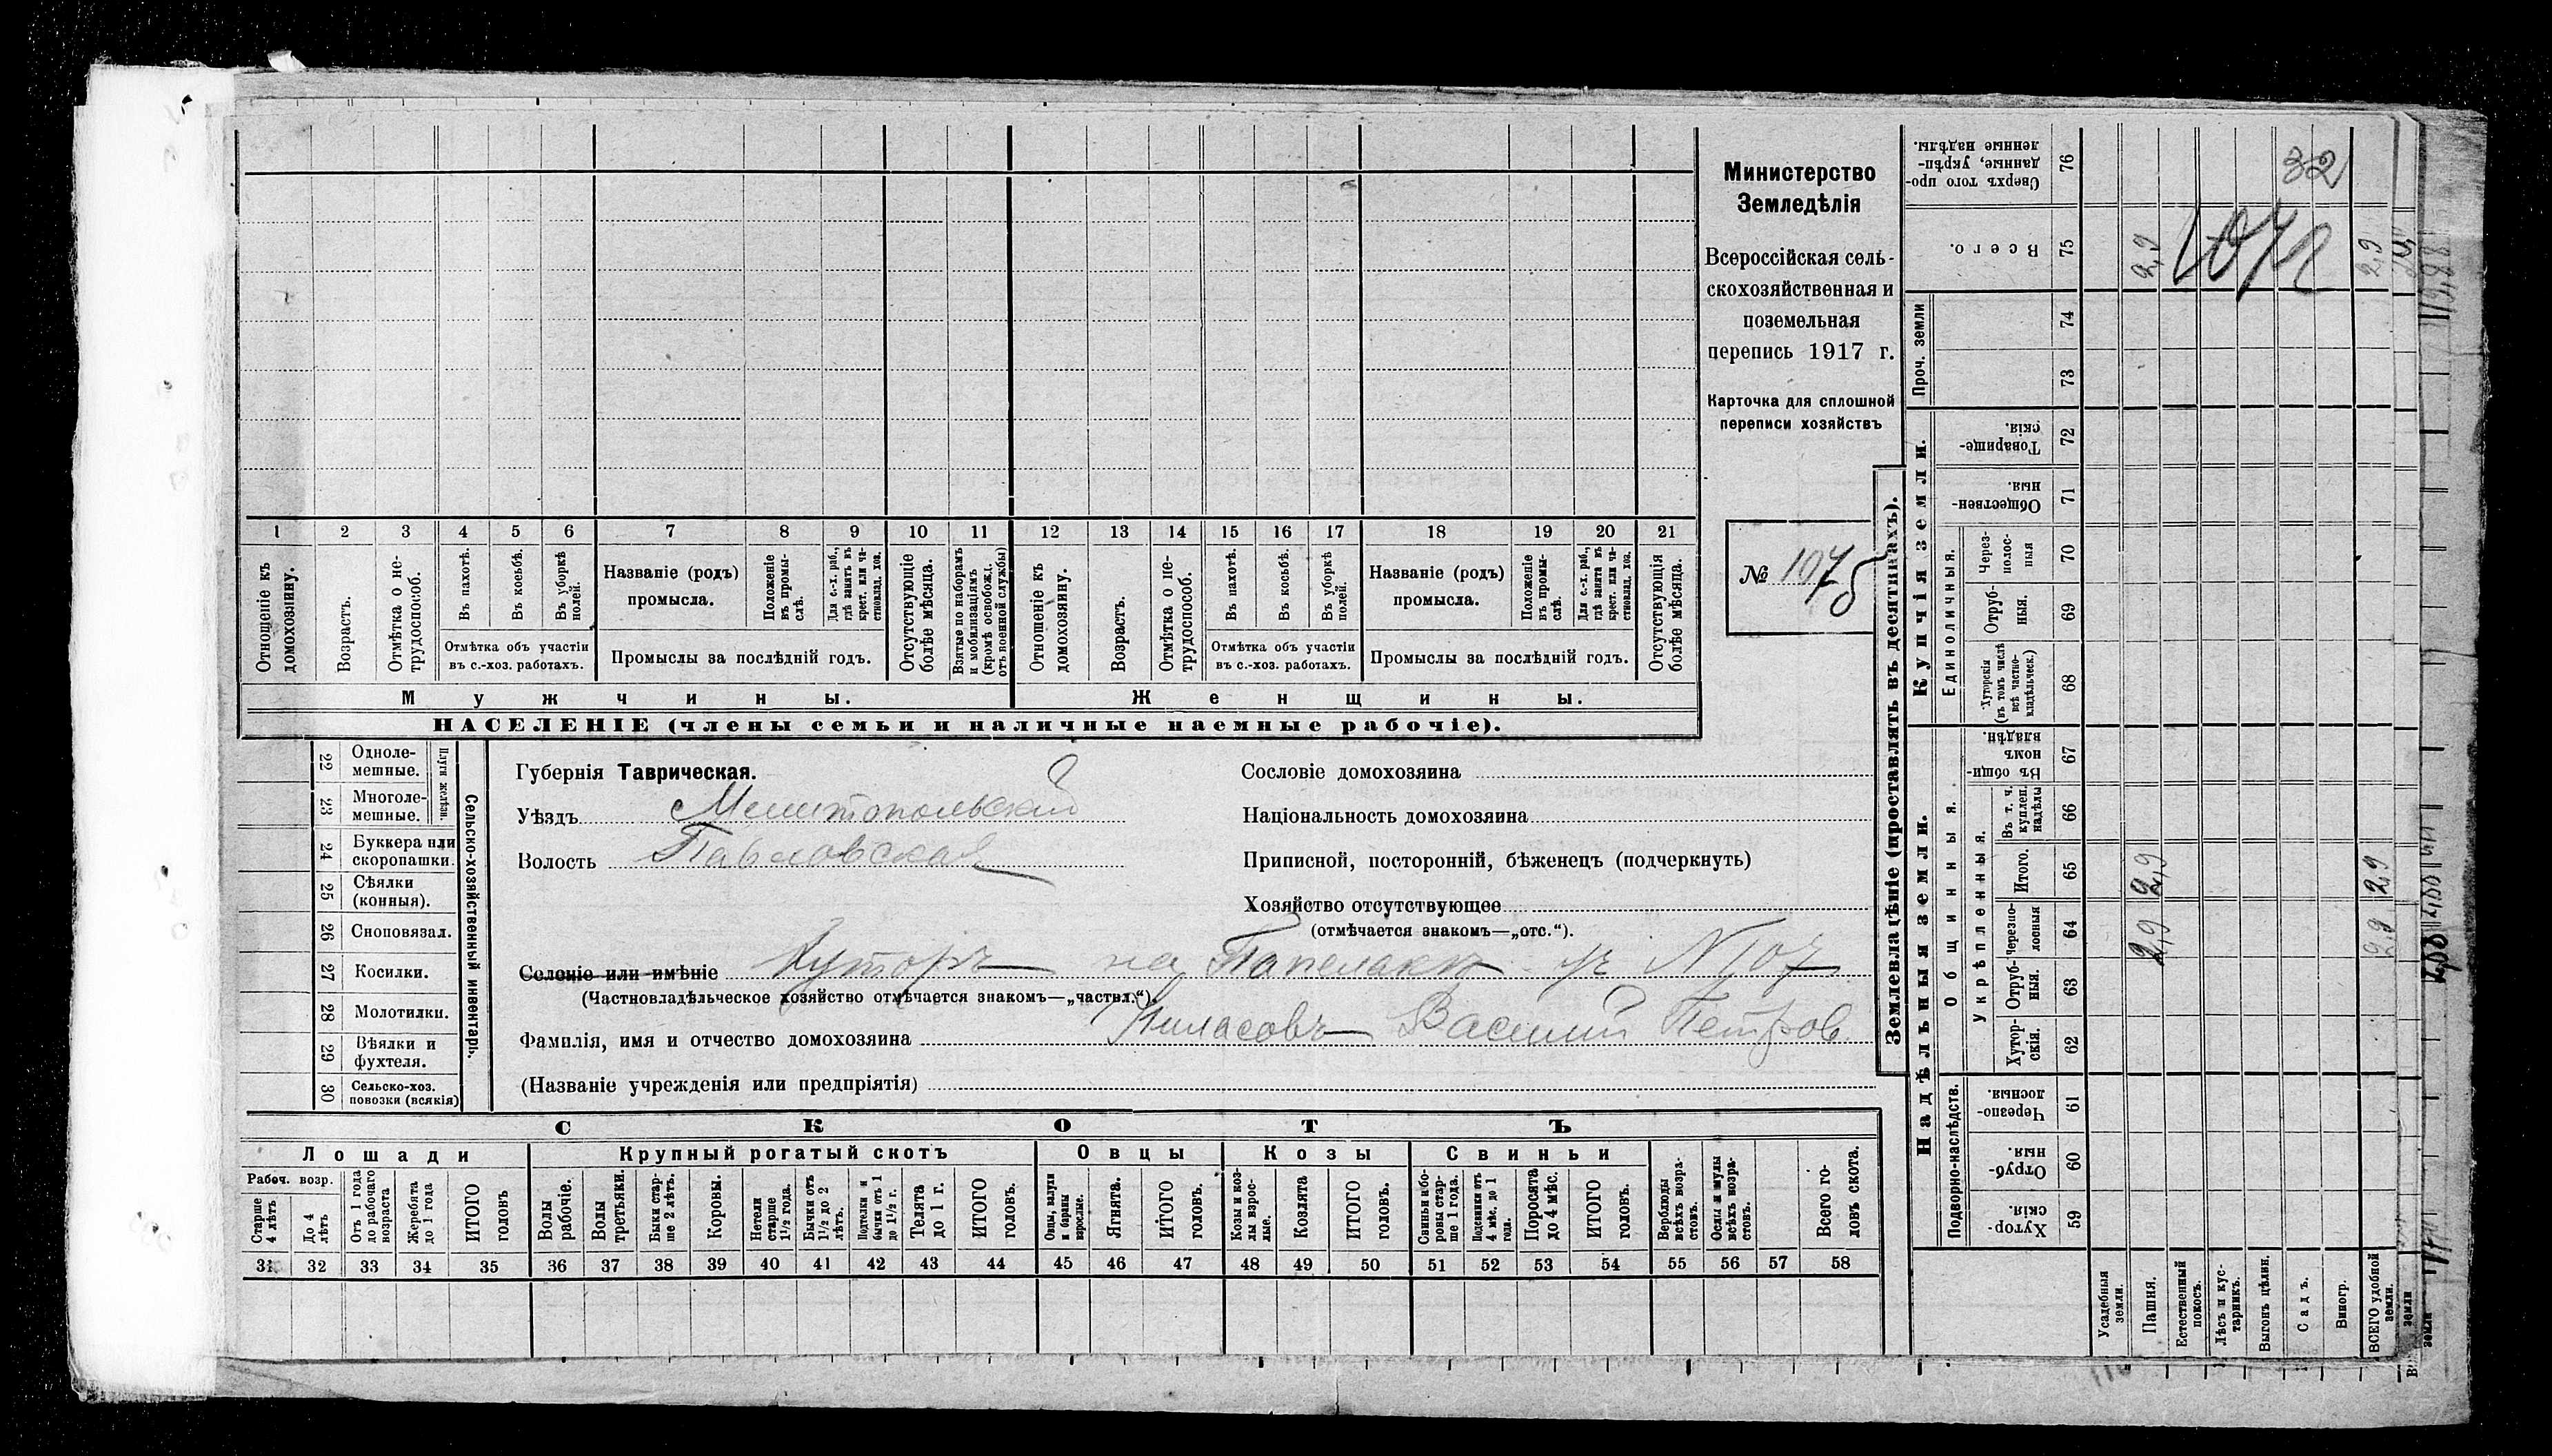 Министерство
Земледѣлія
Всероссійская сель-
скохозяйственная и
поземельная
перепись 1917 г.
Карточка для сплошной
переписи хозяйствъ
№ 1075
1 2 3 4 5 6 7 8 9 10 11 12 13 14 15 16 17 18 19 20 21
Отношеніе къ домохозяину.
Возрастъ.
Отмѣтка о не-трудоспособ.
Въ пахотѣ.
Въ косьбѣ.
Въ уборкѣ полей.
Отмѣтка объ участіи
въ с.-хоз. работахъ.
Названіе (родъ)
промысла.
Положеніе въ промы-слѣ.
Для с.-х. раб., гдѣ занятъ въ крест. или ча-стновлад. хоз.
Промыслы за послѣдній годъ.
Отсутствующіе болѣе мѣсяца.
Взятые по наборамъ и мобилизаціямъ (кромѣ освобожд. отъ военной службы)
Отношеніе къ домохозяину.
Возрастъ.
Отмѣтка о не-трудоспособ.
Въ пахотѣ.
Въ косьбѣ.
Въ уборкѣ полей.
Отмѣтка объ участіи
въ с.-хоз. работахъ.
Названіе (родъ)
промысла.
Положеніе въ промы-слѣ.
Для с.-х. раб., гдѣ занята въ крест. или ча-стновлад. хоз.
Промыслы за послѣдній годъ.
Отсутствующія болѣе мѣсяца.
Мужчины.
Женщины.
НАСЕЛЕНІЕ (члены семьи и наличные наемные рабочіе).
22 Одноле-мешные.
23 Многоле-мешные.
Плуги желѣзн.
24 Буккера или скоропашки.
25 Сѣялки (конныя).
26 Сноповязал.
27 Косилки.
28 Молотилки.
29 Вѣялки и фухтеля.
30 Сельско-хоз. повозки (всякія)
Сельско-хозяйственный инвентарь.
Губернія Таврическая.
Уѣздъ Мелитопольскій
Волость Павловская
Сословіе домохозяина
Національность домохозяина
Приписной, посторонній, бѣженецъ (подчеркнуть)
Хозяйство отсутствующее
(отмѣчается знакомъ—„отс.“).
Селеніе или имѣніе Хуторъ на
(Частновладѣльческое хозяйство отмѣчается знакомъ—„частвл.“).
Фамилія, имя и отчество домохозяина Василій Петров
(Названіе учрежденія или предпріятія)
СКОТЪ
Лошади
Крупный рогатый скотъ
Овцы
Козы
Свиньи
Рабоч. возр.
Старше 4 лѣтъ
До 4 лѣтъ
Отъ 1 года до рабочаго возраста
Жеребята до 1 года
ИТОГО головъ
Волы рабочіе.
Волы третьяки.
Быки стар-ше 2 лѣтъ.
Коровы.
Нетели старше 1½ года.
Бычки отъ 1½ до 2 лѣтъ.
Подтелки и бычки отъ 1 до 1½ г.
Телята до 1 г.
ИТОГО головъ.
Овцы, валухи и бараны взрослые.
Ягнята.
ИТОГО головъ.
Козы и коз-лы взрос-лые.
Козлята
ИТОГО головъ.
Свиньи и бо-ровы стар-ше 1 года.
Подсвинки отъ 4 мѣс. до 1 года.
Поросята до 4 мѣс.
ИТОГО головъ.
Верблюды всѣхъ возра-стовъ.
Ослы и мулы всѣхъ возра-стовъ.
Всего го-ловъ скота.
31 32 33 34 35 36 37 38 39 40 41 42 43 44 45 46 47 48 49 50 51 52 53 54 55 56 57 58
Землевладѣніе (проставлять въ десятинахъ).
Сверхъ того про-данные, укрѣп-ленные надѣлы. 76 32
Всего. 75 2,9 2,9
Проч. земли
74
73
Купчія земли.
Товарище-скія. 72
Обществен-ныя. 71
Единоличныя.
Через-полос-ныя 70
Отруб-ныя. 69
Хуторскія (въ томъ числѣ всѣ частно-владѣльческ.) 68
Надѣльныя земли.
Общинныя.
Въ общи-номъ владѣн. 67
Укрѣпленныя.
Въ т. ч. куплен. надѣлы 66
Итого. 65 2,9 2,9
Черезпо-лосныя 64 2,9 2,9
Отруб-ныя. 63
Хутор-скія. 62
Подворно-наслѣдств.
Черезпо-лосныя. 61
Отруб-ныя. 60
Хутор-скія. 59
Усадебныя земли.
Пашня.
Естественный покосъ.
Лѣсъ и кус-тарникъ.
Выгонъ цѣлин.
Садъ.
Виногр.
ВСЕГО удобной земли.